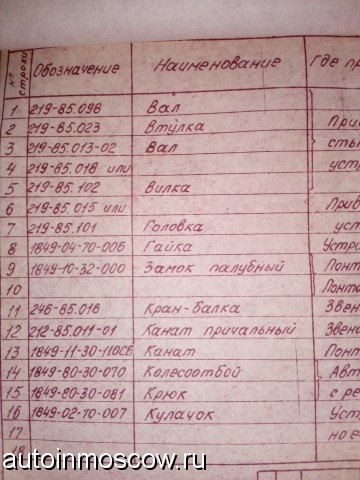 № строки Обозначение Наименование Где
1 219-85.098 Вал
2 219-85.023 Втулка
3 219-85.013-02 Вал
4 219-85.018 или
5 219-85.102 Вилка
6 219-85.015 или
7 219-85.101 Головка
8 1849-04-70-006 Гайка
9 1849-10-32-000 Замок палубный
10
11 246-85.016 Кран-балка
12 212-85.011-01 Канат причальный
13 1849-11-30-110СБ Канат
14 1849-80-30-070 Колесоотбой
15 1849-80-30-081 Крюк
16 1849-02-70-007 Кулачок
17
18
autoinmoscow.ru
autoinmoscow.ru